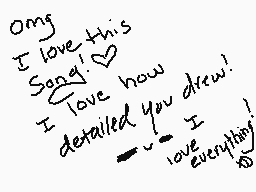 omg
I love this
Song! ♡
I love how
detailed you drew!
I
love everything!